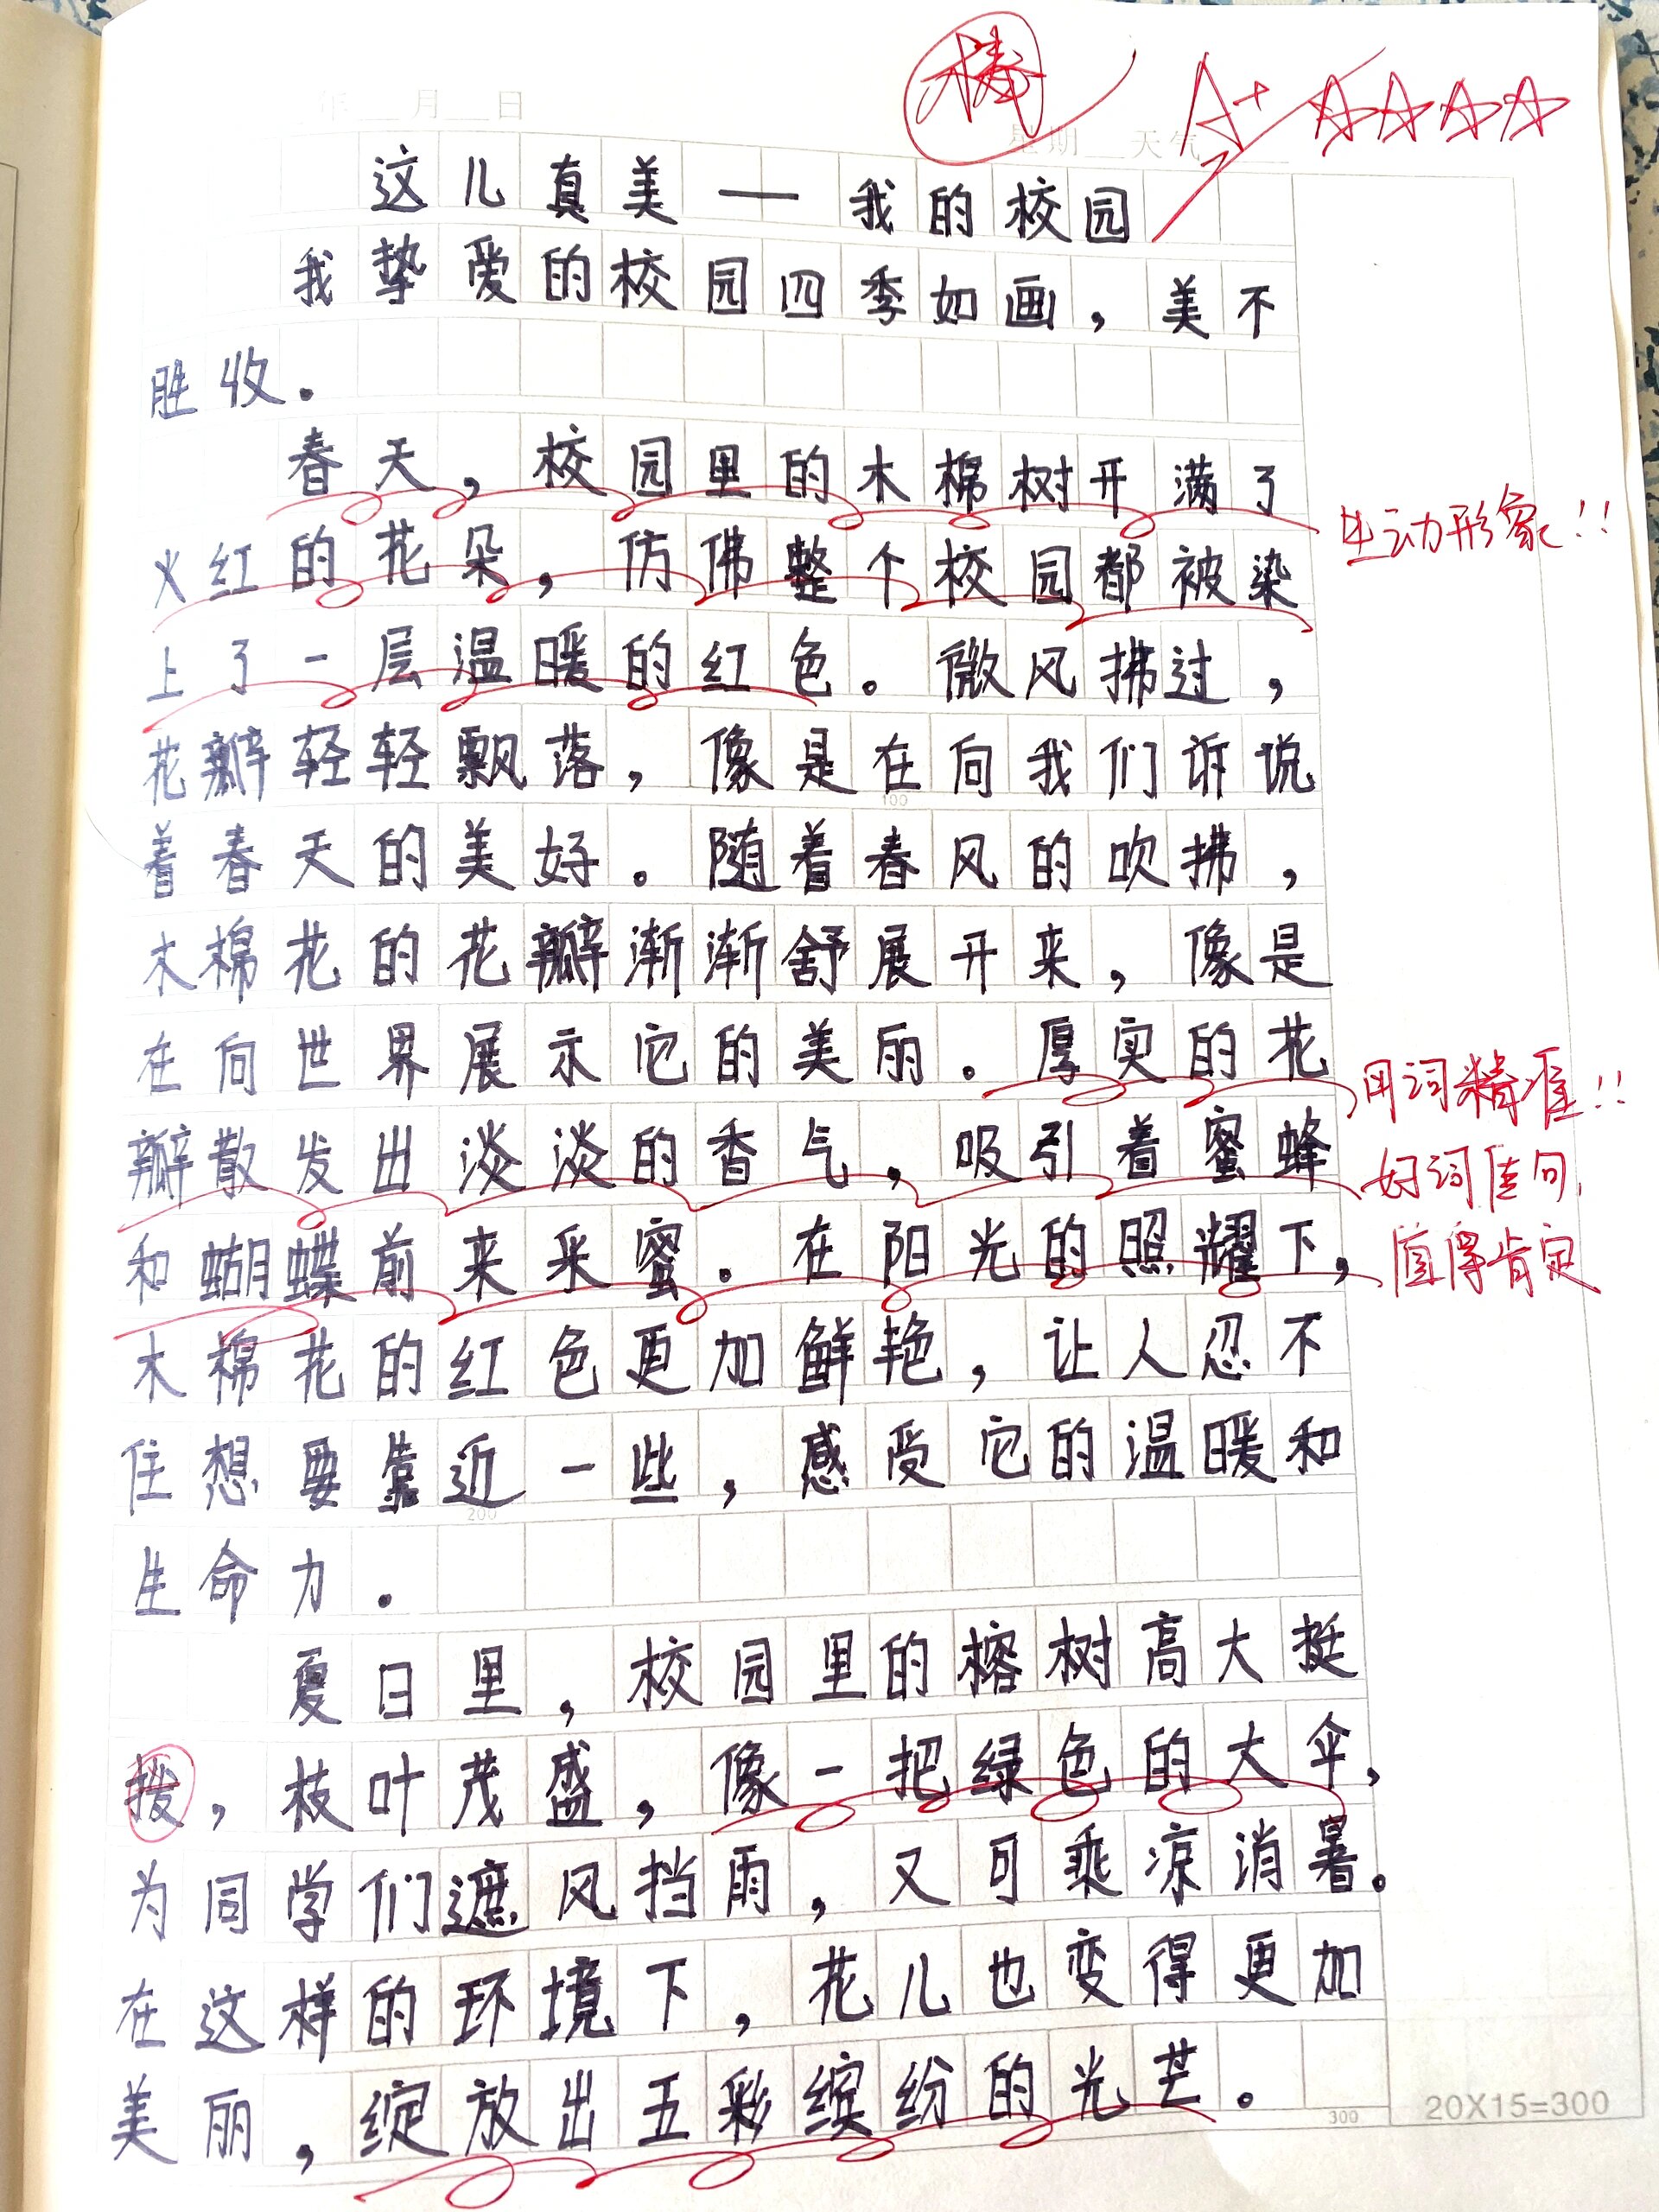 年 月 日
棒 A+
星期 天气
这儿真美——我的校园
我挚爱的校园四季如画，美不
胜收。
春天，校园里的木棉树开满了
生动形象!!
火红的花朵，仿佛整个校园都被染
上了一层温暖的红色。微风拂过，
花瓣轻轻飘落，像是在向我们诉说
100
着春天的美好。随着春风的吹拂，
木棉花的花瓣渐渐舒展开来，像是
在向世界展示它的美丽。厚实的花
用词精准!!
瓣散发出淡淡的香气，吸引着蜜蜂
好词佳句,
和蝴蝶前来采蜜。在阳光的照耀下，
值得肯定
木棉花的红色更加鲜艳，让人忍不
住想要靠近一些，感受它的温暖和
200
生命力。
夏日里，校园里的榕树高大挺
拨，枝叶茂盛，像一把绿色的大伞，
为同学们遮风挡雨，又可乘凉消暑。
在这样的环境下，花儿也变得更加
美丽，绽放出五彩缤纷的光芒。
300
20X15=300